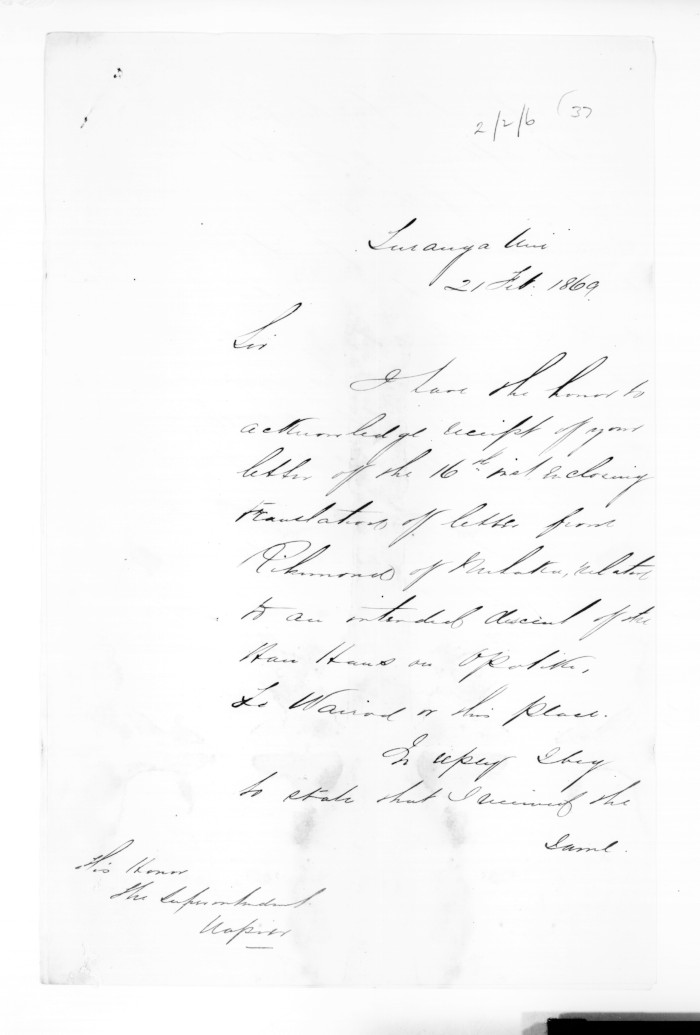 2/2/6 (37
Turanga Nui
21 Feb. 1869.
Sir
I have the honor to
acknowledge receipt of your
letter of the 16th inst enclosing
translation of letter from
Pikimona of, relative
to an intended descent of the
Hau Haus on Opotiki,
Te Wairoa or this place.
In reply I beg
to state that I received the
same.
His Honor
The Superintendent
Napier